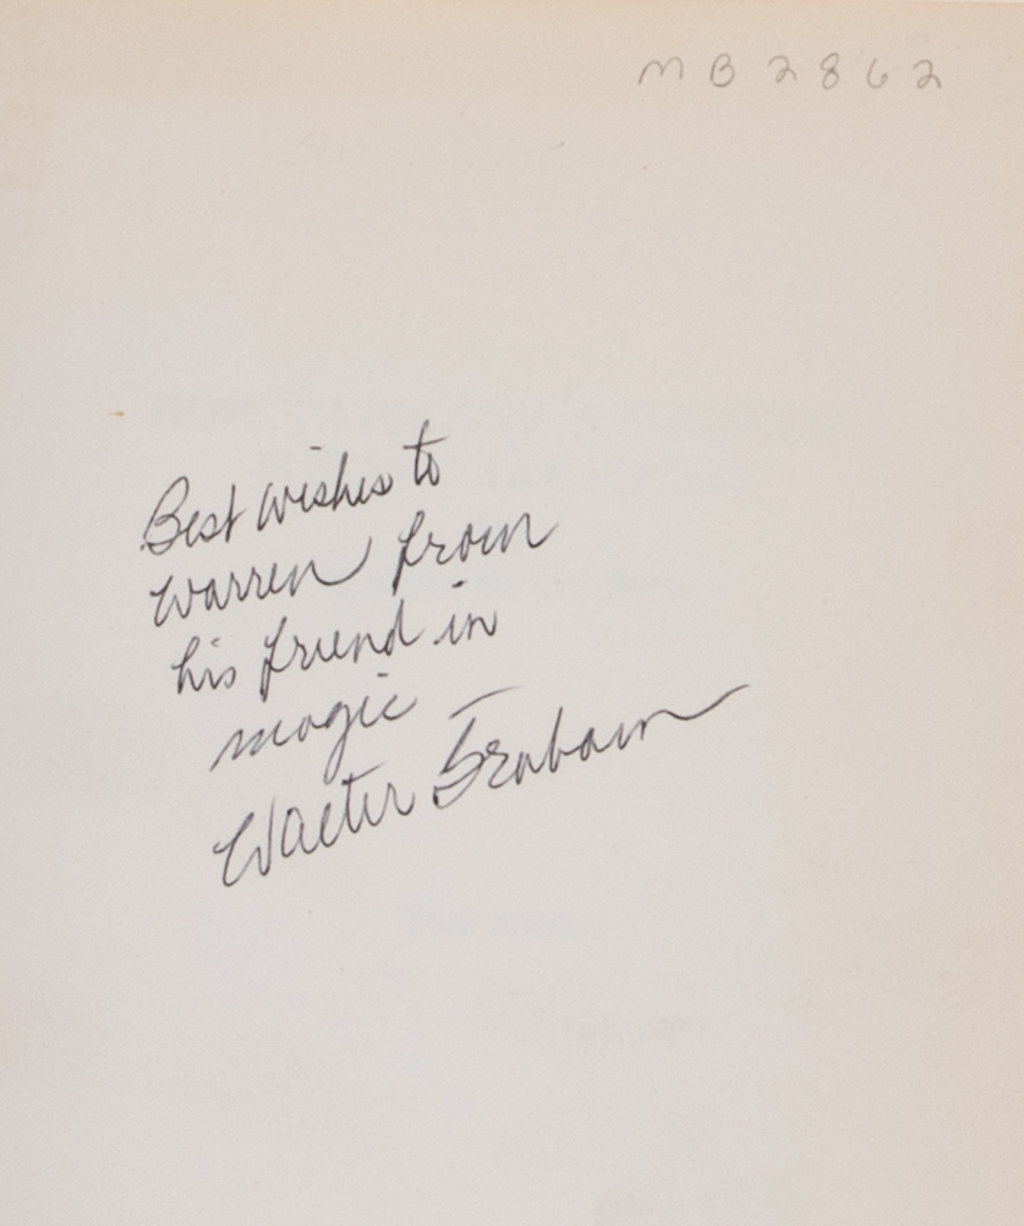 MB2862
Best wishes to
Warren from
his friend in
magic
Walter Graham